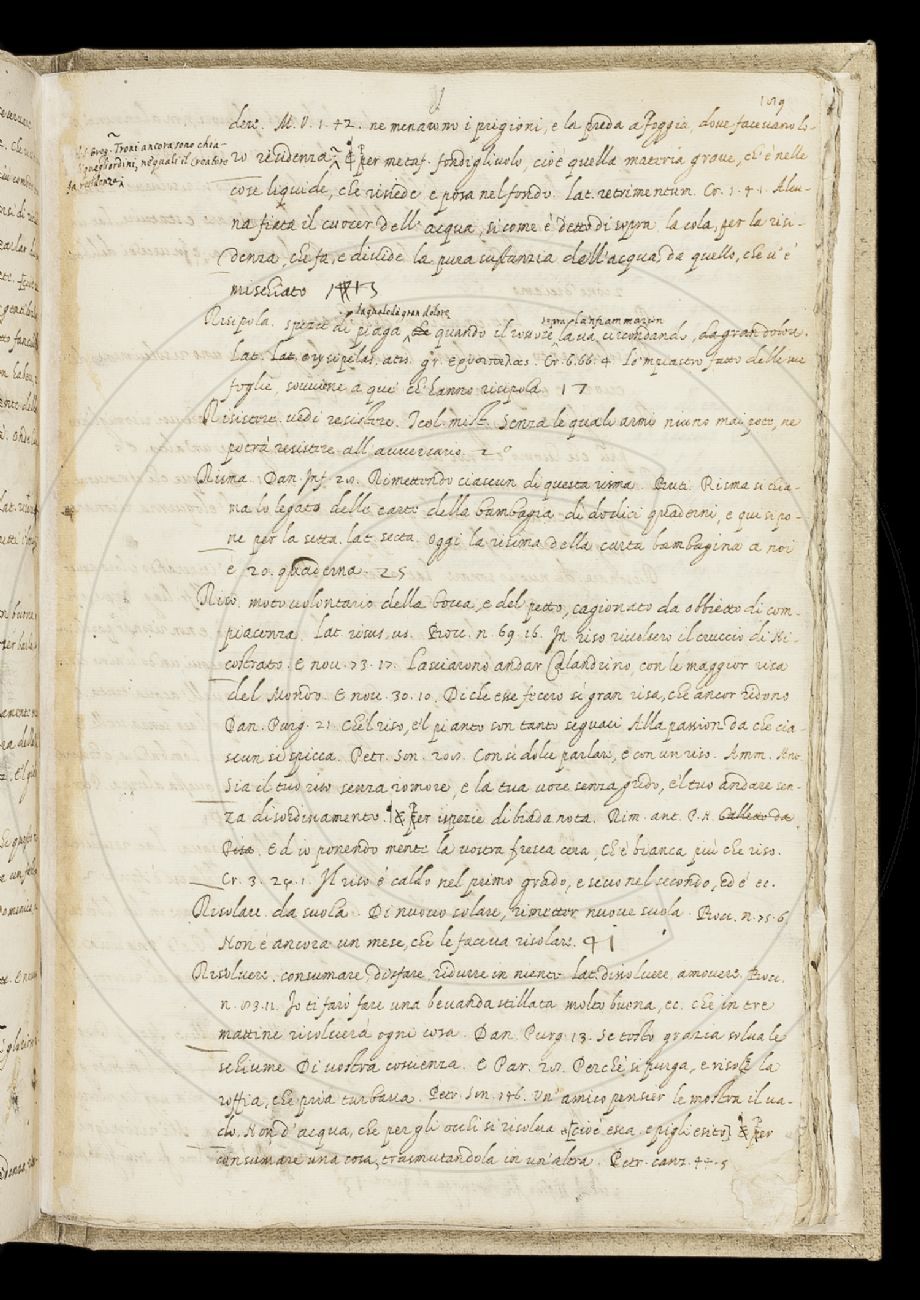 dere. M. V. 1. 42. ne menarono i prigioni, e la preda a Foggia, dove facevano lo-
Mor. Greg. Troni ancora sono chia-
quegli ordini, ne' quali il Creatore
fa residenza
ro residenza. § Per metaf. fondigliuolo, cioè quella materia grave, ch'è nelle
cose liquide, che risiede, e posa nel fondo. Lat. retrimentum. Cr. 1. 4. 1. Alcu-
na fiata il cuocer dell' acqua, si come è detto di sopra, la cola, per la risi-
denza, che fa, e divide la pura sustanzia dell'acqua, da quello, che v'è
mischiato 13
Risipola. spezie di piaga, che quando il rossore la va circondando, da gran dolore.
dagnolo da gran dolore
sopra la infiammazion
Lat. erysipelas, atis. gr. Cr. 6. 66. 4. Lo'mpiastro fatto delle sue
foglie, sovviene a que' ch'hanno risipola. 17
Risistere. vedi resistere. Teol. mist. Senza le quali armi niuno mai pote, ne
potrà resistere all' avversario. 20
Risma. Dan. Inf. 28. Rimettendo ciascun di questa risma. But. Risma si chia-
ma lo legato delle carte della bambagia di dodici quaderni, e qui si po-
ne per la setta. lat. secta. oggi la risima della carta bambagina a noi
è 20. quaderna. 25
Riso. moto volontario della bocca, e del petto, cagionato da obbietto di com-
piacenza. Lat. risus, us. Bocc. n. 69. 16. In riso rivolsero il cruccio di Ni-
costrato. E nov. 73. 17. Lasciarono andar Calandrino, con le maggior risa
del Mondo. E nov. 30. 10. Di che esse fecero sì gran risa, che ancor ridono
Dan. Purg. 21. Che'l riso, e'l pianto son tanto seguaci Alla passion da che cia-
scun si spicca. Petr. Son. Con sì dolce parlar, e con un riso. Amm. Ant.
Sia il tuo riso senza romore, e la tua voce senza grido, e'l tuo andare sen-
za disordinamento. § Per ispezie di biada nota. Rim. ant. P. N. Galletto da
Pisa. Ed io ponendo mente la vostra fresca cera, ch'è bianca più che riso.
Cr. 3. 24. 1. Il riso è caldo nel primo grado, e secco nel secondo, ed è ec.
Risolare. da suola. Di nuovo solare, rimetter nuove suola. Bocc. n. 75. 6.
Non è ancora un mese, che le faceva risolare. 41
Risolvere. consumare, disfare, ridurre in niente. lat. dissolvere, amovere. Bocc.
n. 83. 11. Io ti farò fare una bevanda stillata molto buona, ec. che in tre
mattine risolverà ogni cosa. Dan. Purg. 13. Se tosto grazia solva le
schiume Di vostra coscienza. E Par. 28. Perchè si purga, e risolve la
roffia, che pria turbava. Petr. Son. 186. Un' amico pensier le mostra il va-
do, Non d'acqua, che per gli occhi si risolva [cioè esca, e pigli esito] § Per
consumare una cosa, trasmutandola in un'altra. Petr. canz. 44. 5